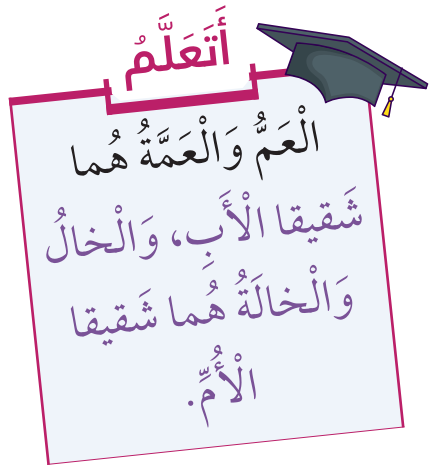 أَتَعَلَّمُ
الْعَمُّ وَالْعَمَّةُ هُما
شَقيقا الْأَبِ، وَالْخالُ
وَالْخالَةُ هُما شَقيقا
الْأُمِّ.